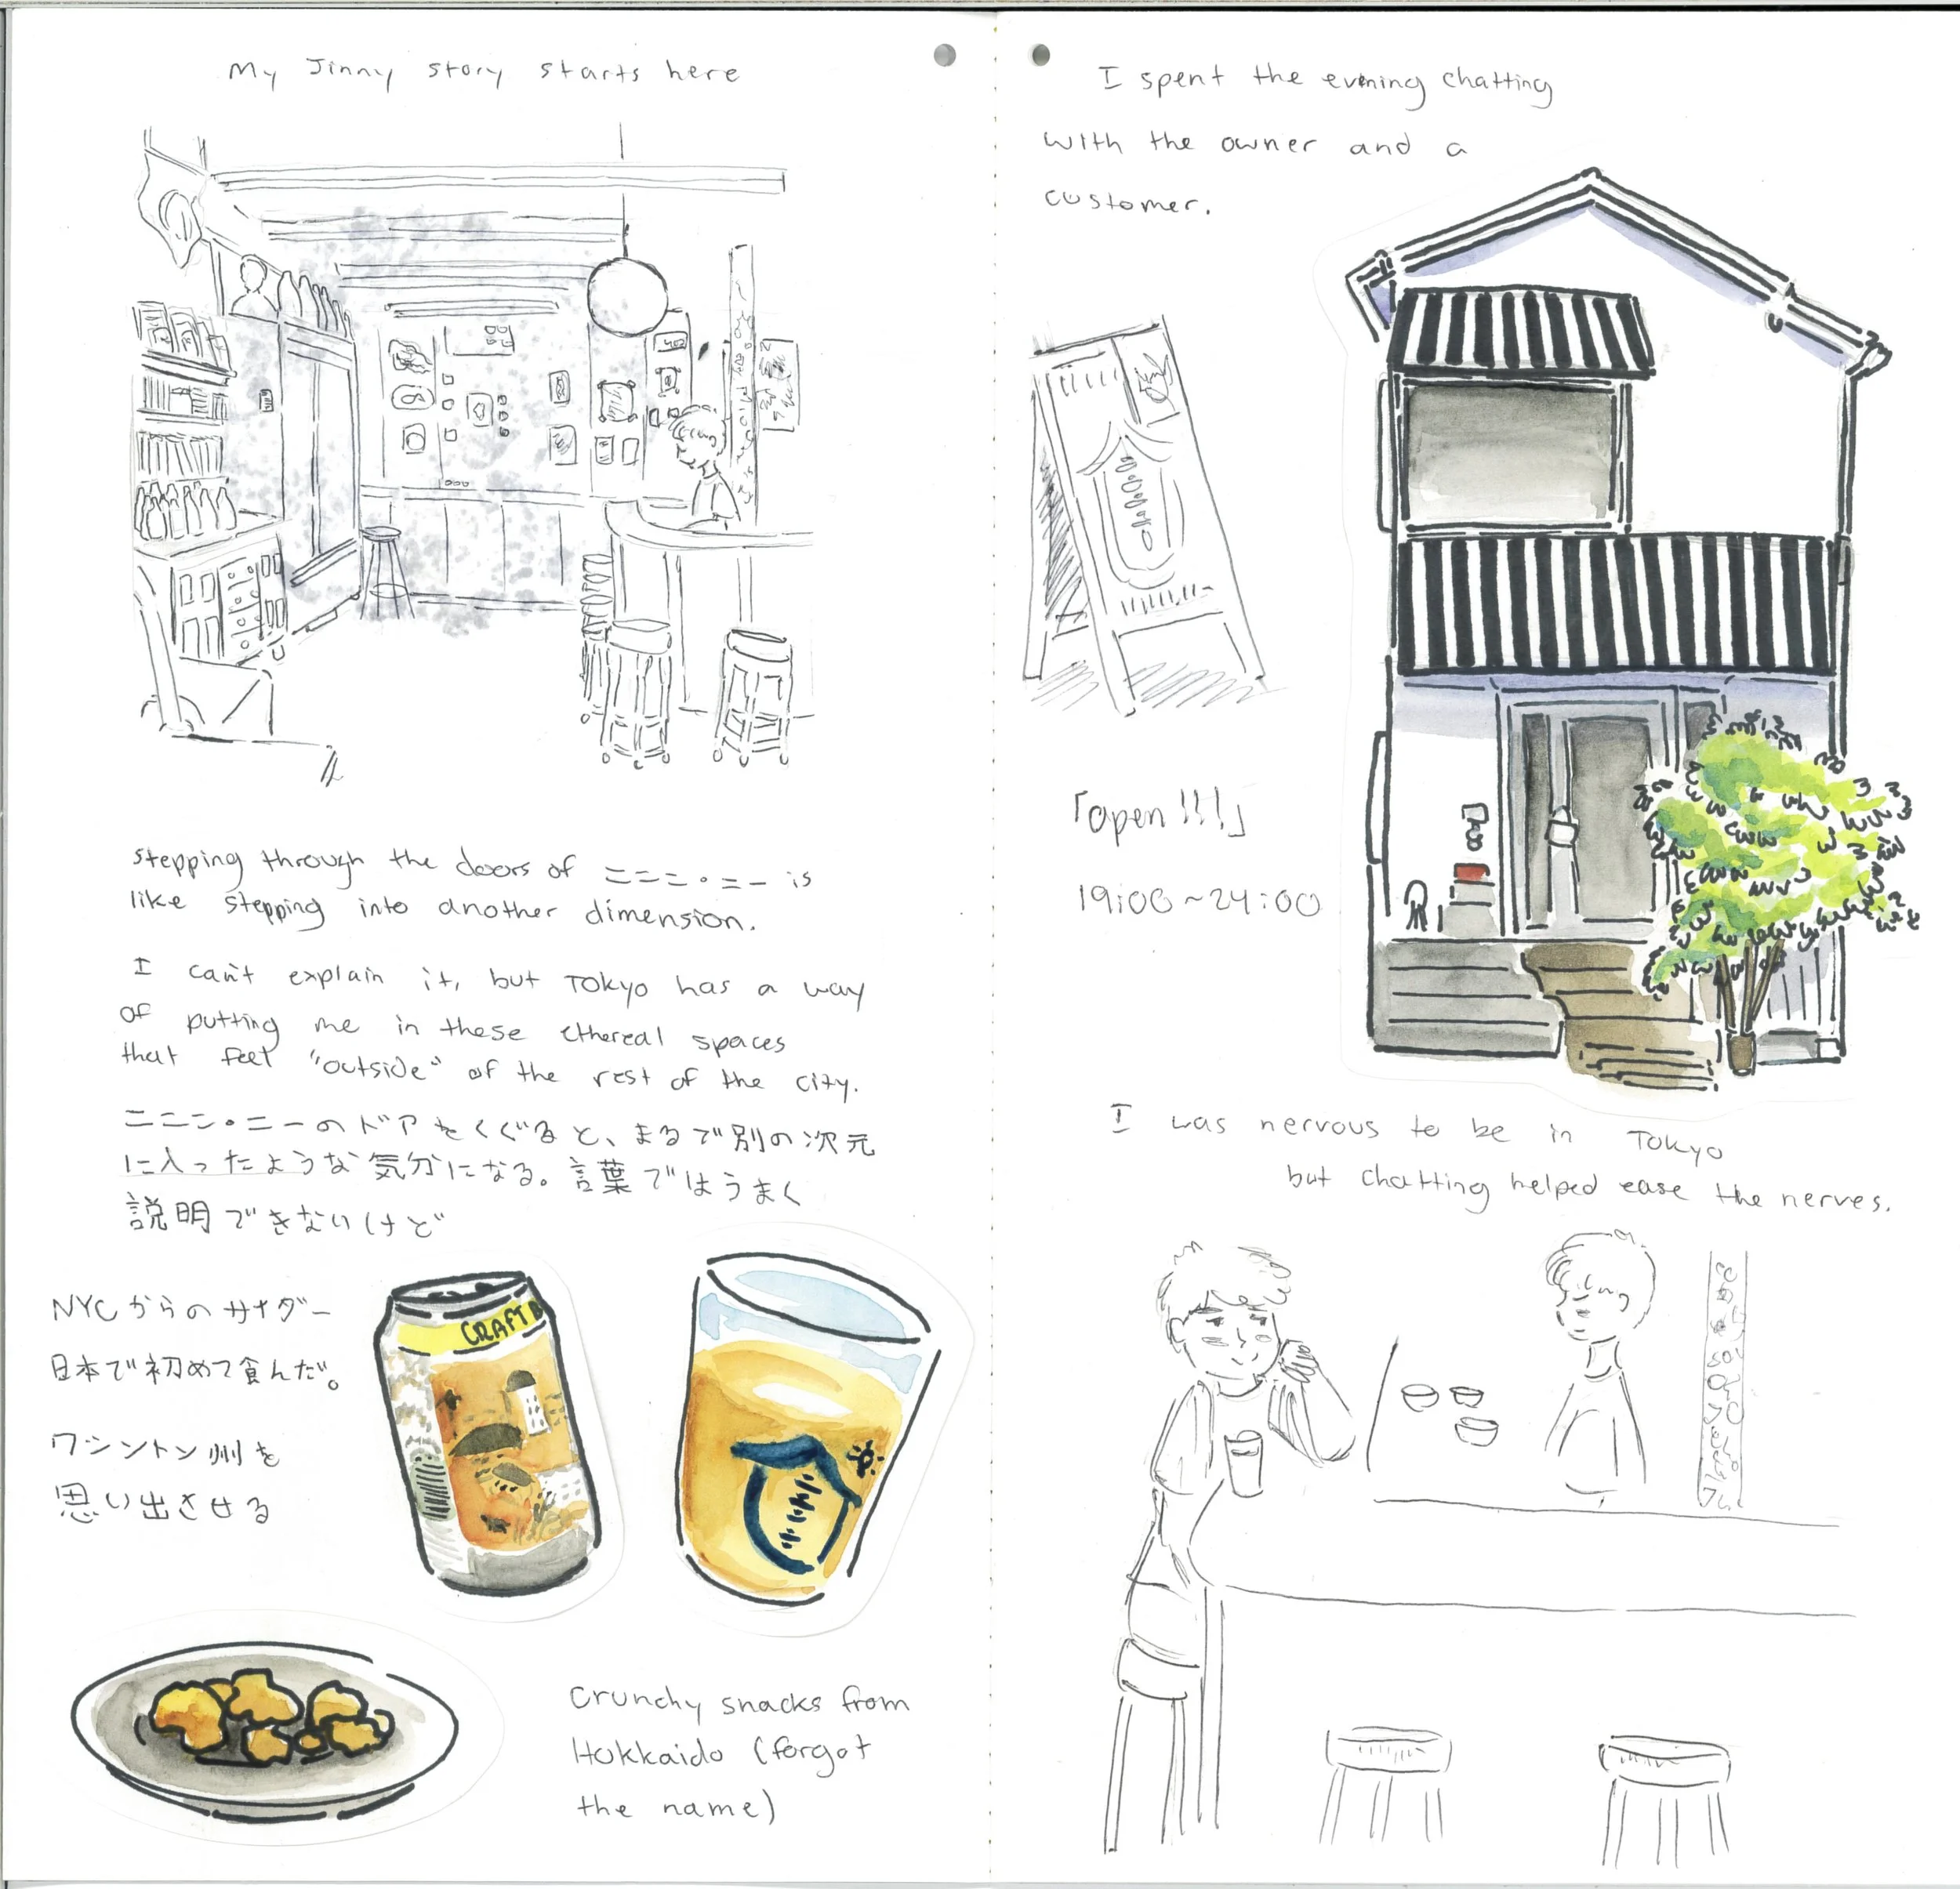 My Jinny story starts here
Stepping through the doors of ニニニ・ニー is
like stepping into another dimension.
I can't explain it, but Tokyo has a way
of putting me in these ethereal spaces
that feel "outside" of the rest of the city.
ニニニ・ニーのドアをくぐると、まるで別の次元
に入ったような気分になる。言葉ではうまく
説明できないけど
NYCからのサイダー
日本で初めて飲んだ。
ワシントン州を
思い出させる
CRAFT
Crunchy snacks from
Hokkaido (forgot
the name)
I spent the evening chatting
with the owner and a
customer.
「open!!!」
19:00~24:00
I was nervous to be in Tokyo
but chatting helped ease the nerves.